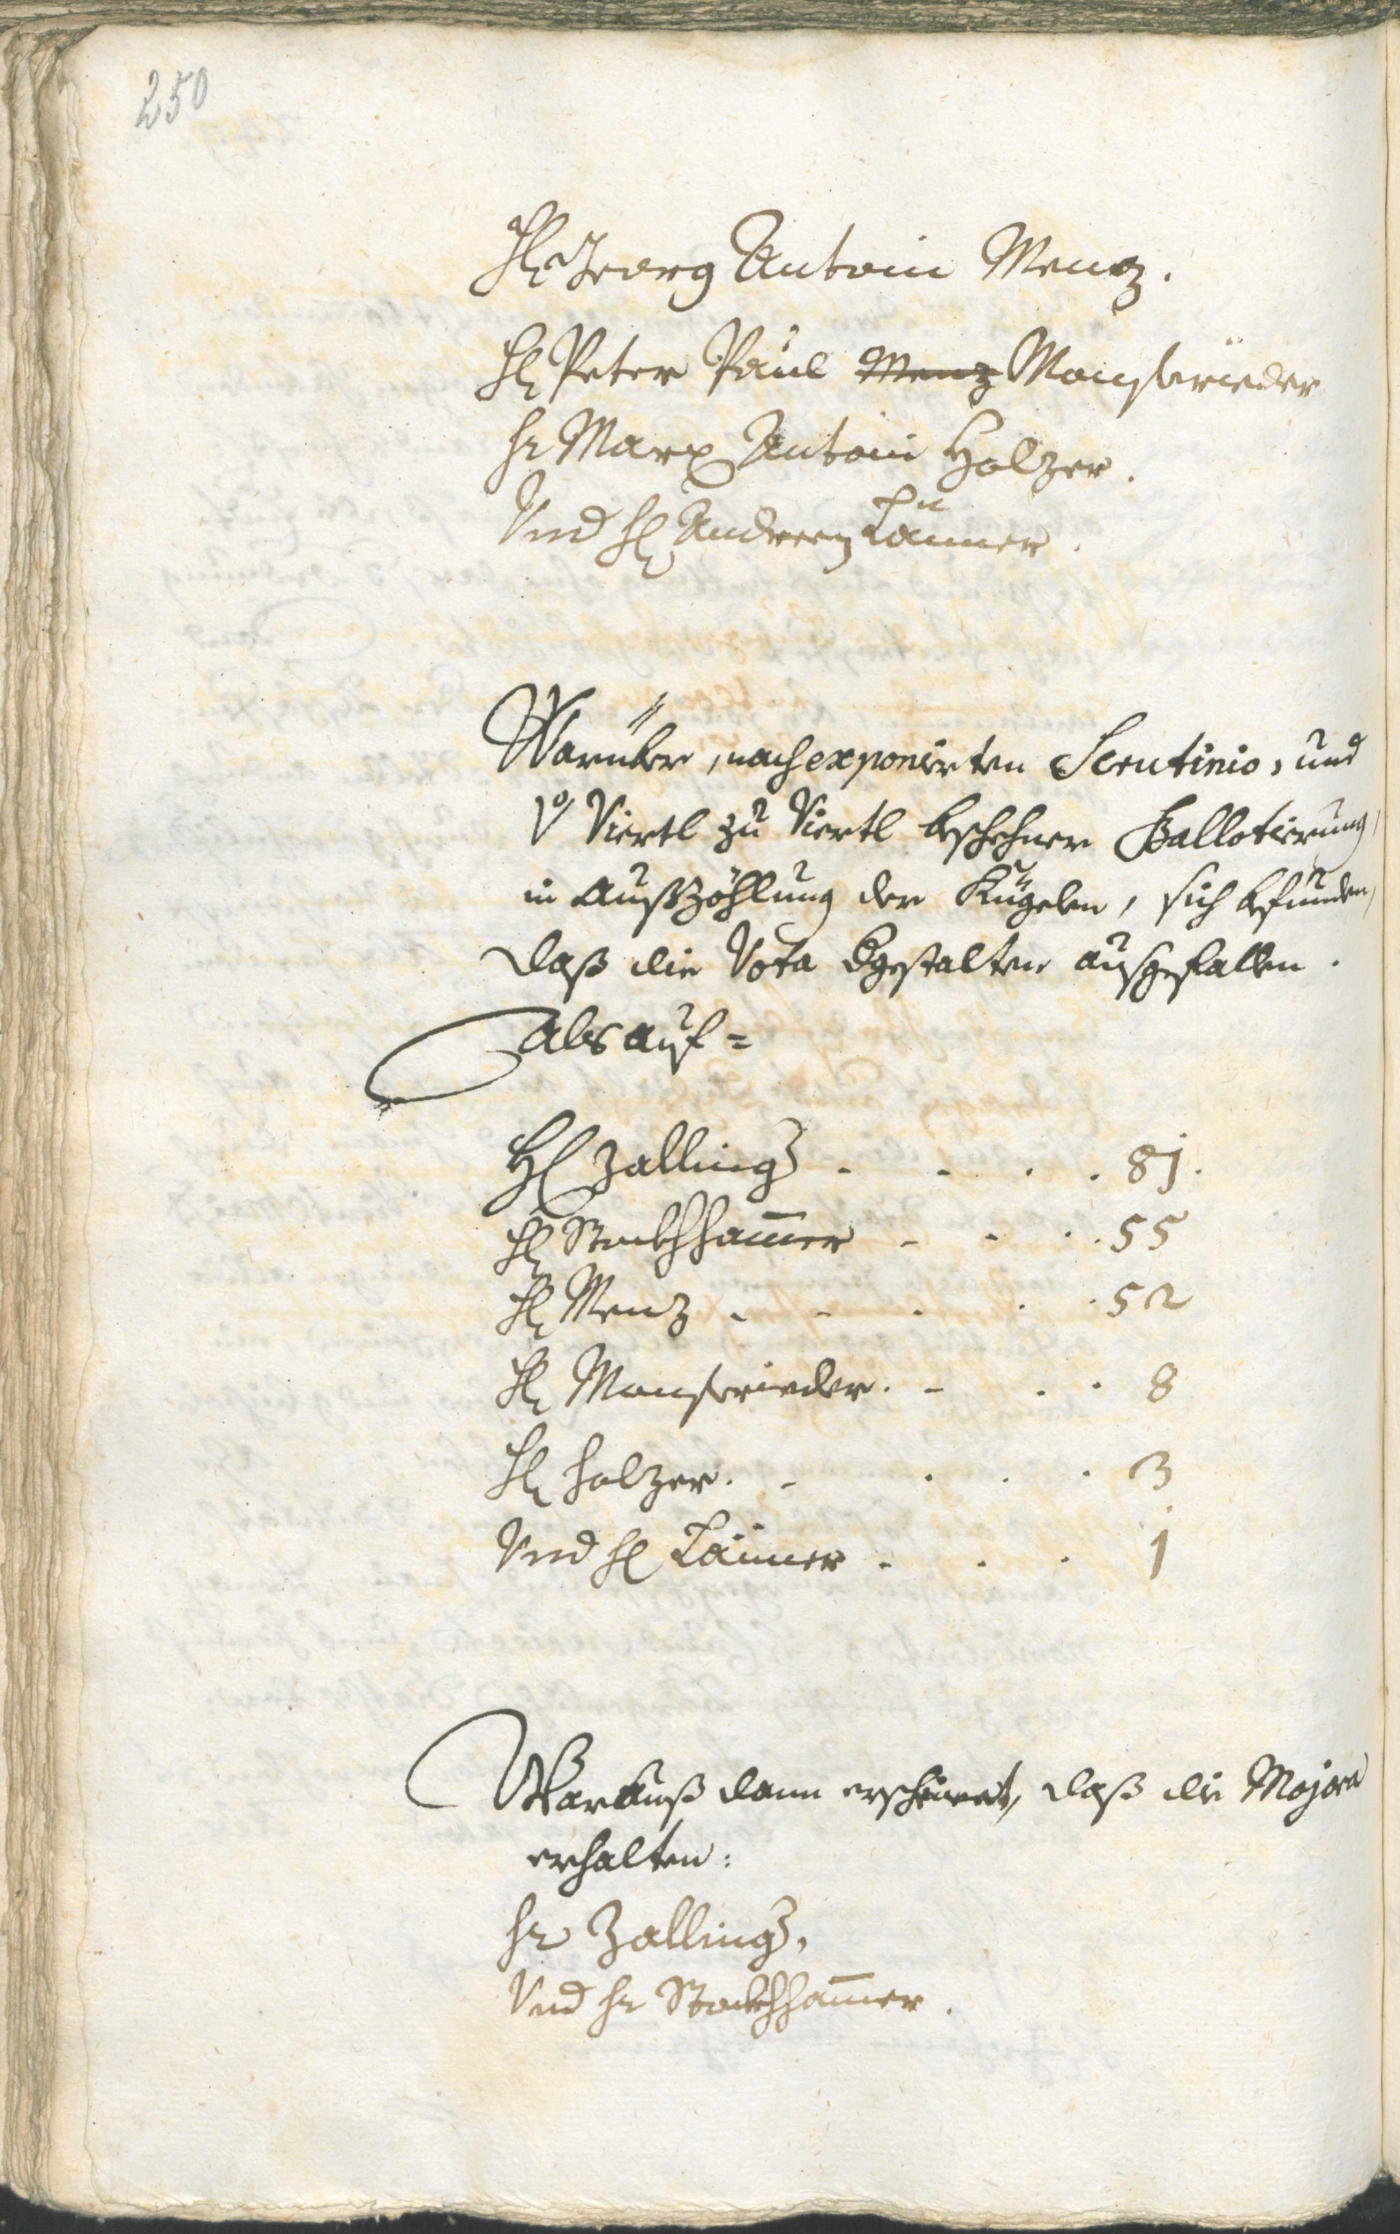 250
Hr Georg Antoni Menz.
Hr Peter Paul Menz Monsrieder
Hr Marx Antoni Holzer.
Vnd Hr Andreen Läner.
Warüber, nach exponirten Scrutinio, und
vo Viertl zu Viertl beschehner Ballotierung,
in Außzöhlung der Kugelen, sich befunden,
daß die Vota dgestalten ausgefallen.
Als auf=
Hr Zallinger . . . . 81.
Hr Stockhhamer . . . . 55
Hr Menz . . . . . 52
Hr Monsrieder . . . . 8
Hr Holzer . . . . . 3
Vnd Hr Läner . . . 1
Warauß dann erscheinet, daß die Majora
erhalten:
Hr Zallinger,
Vnd Hr Stockhhamer.